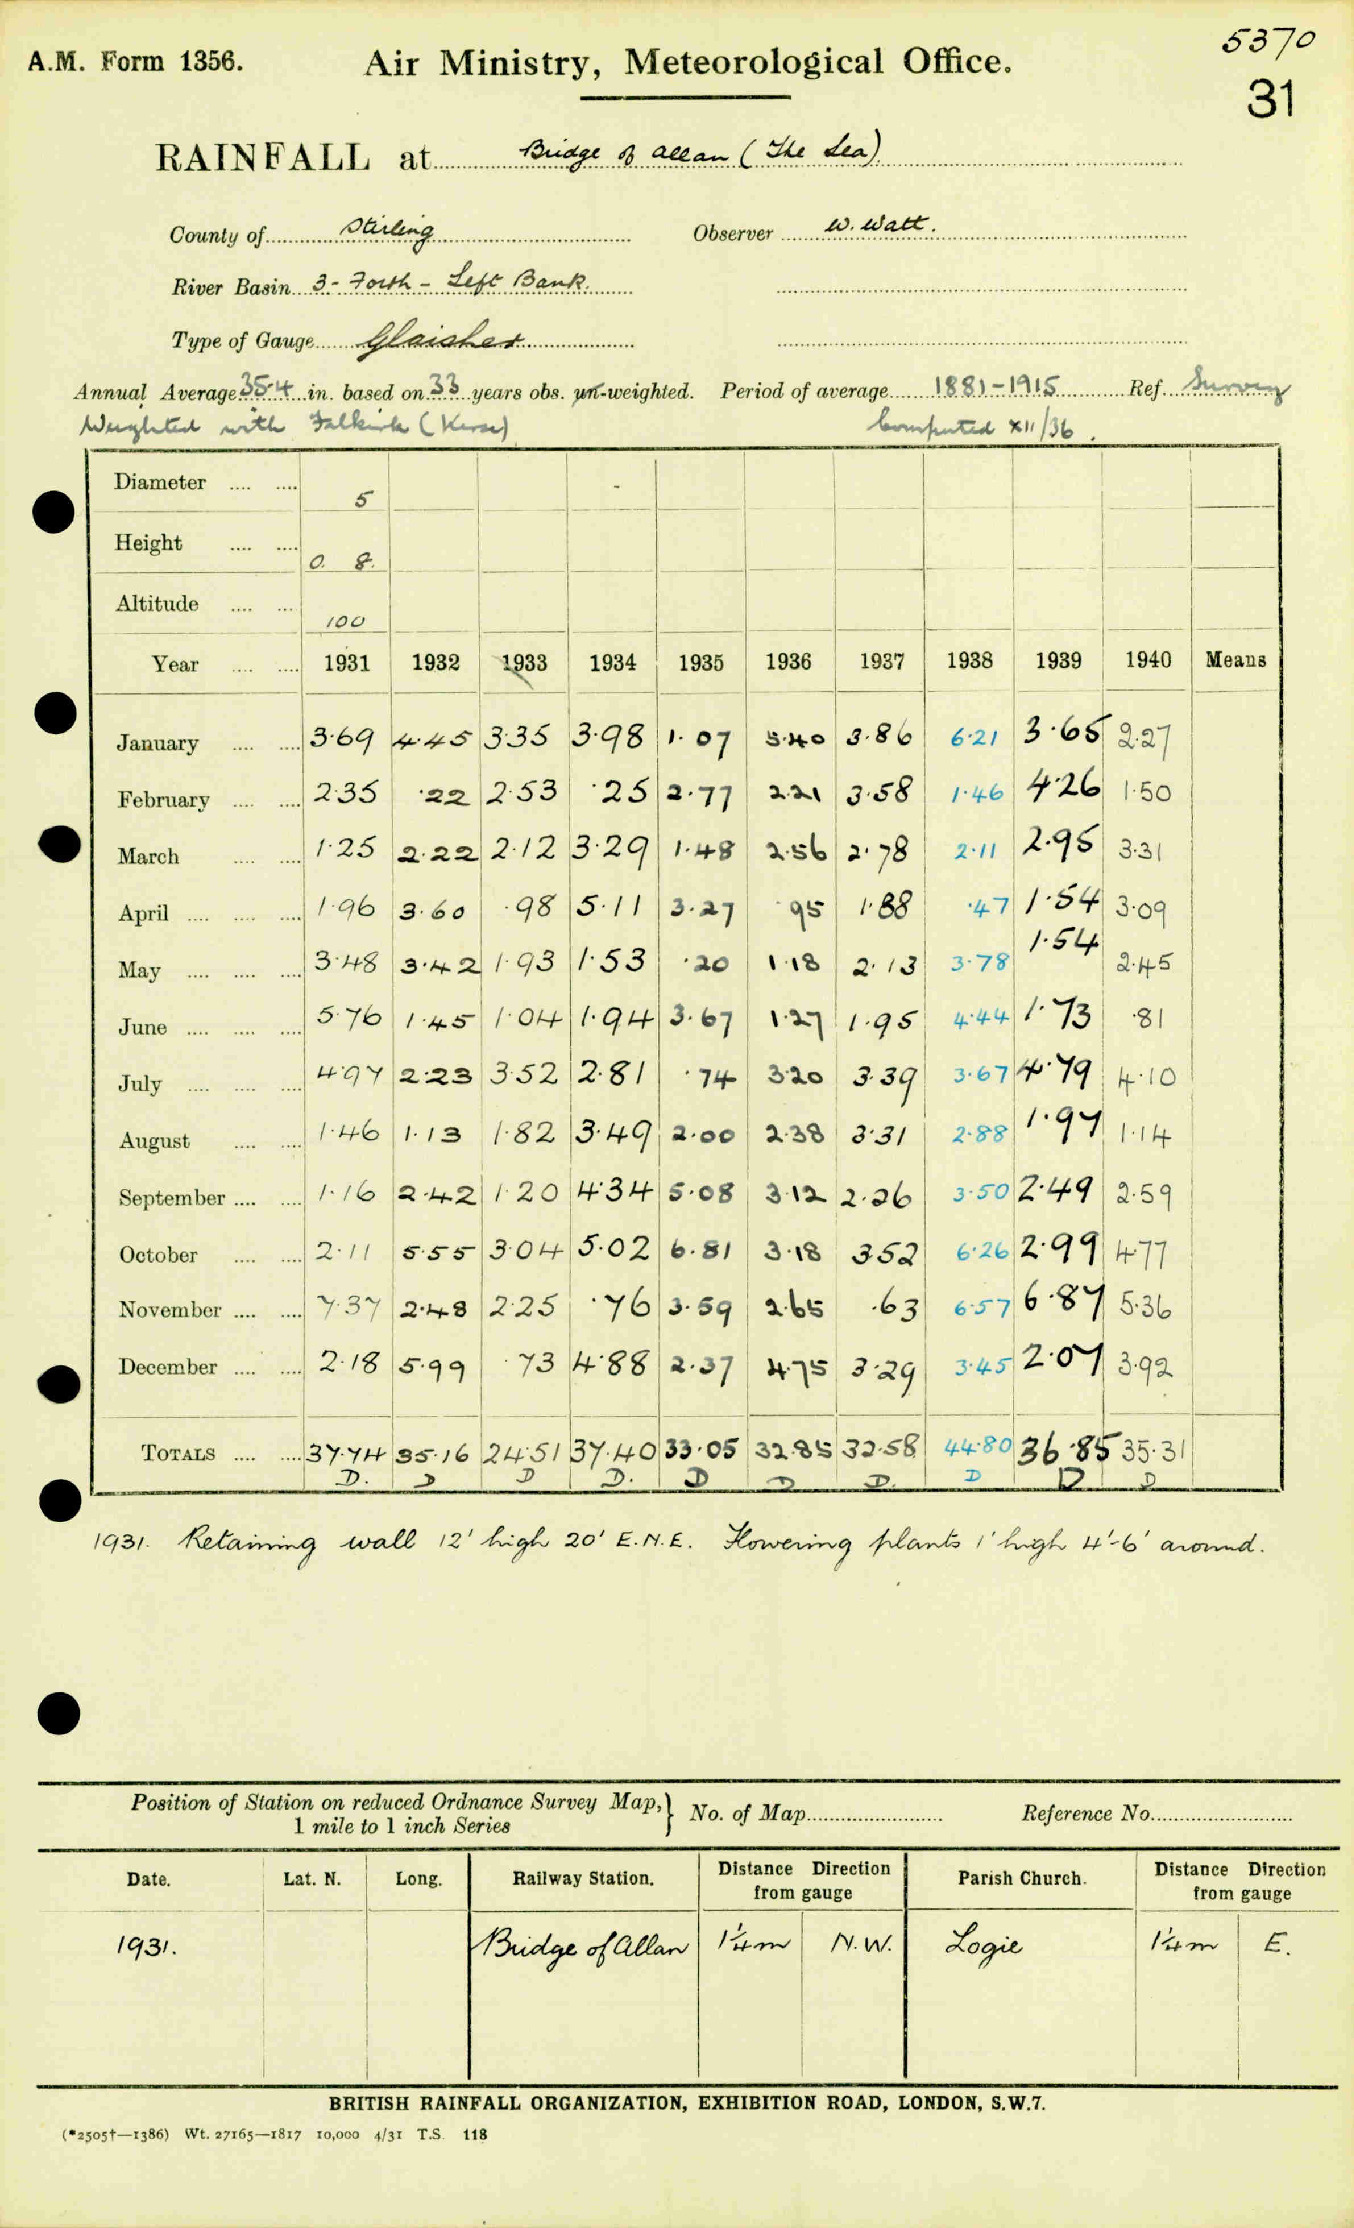 5370
A.M. Form 1356. Air Ministry, Meteorological Office.
31
RAINFALL at Bridge of Allan (The Lea)
County of Stirling Observer W. Watt.
River Basin 3 - Forth - Left Bank.
Type of Gauge Glaisher
Annual Average 35.4 in. based on 33 years obs. un-weighted. Period of average 1881-1915 Ref. Survey
Weighted with Falkirk (Kerse) Computed XII/36.
Diameter 5
Height 0. 8.
Altitude 100
Year 1931 1932 1933 1934 1935 1936 1937 1938 1939 1940 Means
January 3.69 4.45 3.35 3.98 1.07 5.40 3.86 6.21 3.65 2.27
February 2.35 .22 2.53 .25 2.77 2.21 3.58 1.46 4.26 1.50
March 1.25 2.22 2.12 3.29 1.48 2.56 2.78 2.11 2.95 3.31
April 1.96 3.60 .98 5.11 3.27 .95 1.88 .47 1.54 3.09
May 3.48 3.42 1.93 1.53 .20 1.18 2.13 3.78 1.54 2.45
June 5.76 1.45 1.04 1.94 3.67 1.27 1.95 4.44 1.73 .81
July 4.97 2.23 3.52 2.81 .74 3.20 3.39 3.67 4.79 4.10
August 1.46 1.13 1.82 3.49 2.00 2.38 3.31 2.88 1.97 1.14
September 1.16 2.42 1.20 4.34 5.08 3.12 2.26 3.50 2.49 2.59
October 2.11 5.55 3.04 5.02 6.81 3.18 3.52 6.26 2.99 4.77
November 7.37 2.48 2.25 .76 3.59 2.65 .63 6.57 6.87 5.36
December 2.18 5.99 .73 4.88 2.37 4.75 3.29 3.45 2.07 3.92
TOTALS 37.74 35.16 24.51 37.40 33.05 32.85 32.58 44.80 36.85 35.31
D. D D D. D D D. D D D
1931. Retaining wall 12' high 20' E.N.E. Flowering plants 1' high 4'-6' around.
Position of Station on reduced Ordnance Survey Map, 1 mile to 1 inch Series } No. of Map Reference No.
Date. Lat. N. Long. Railway Station. Distance Direction from gauge Parish Church. Distance Direction from gauge
1931. Bridge of Allan 1¼m N.W. Logie 1¼m E.
BRITISH RAINFALL ORGANIZATION, EXHIBITION ROAD, LONDON, S.W.7.
(*2505†—1386) Wt. 27165—1817 10,000 4/31 T.S. 118